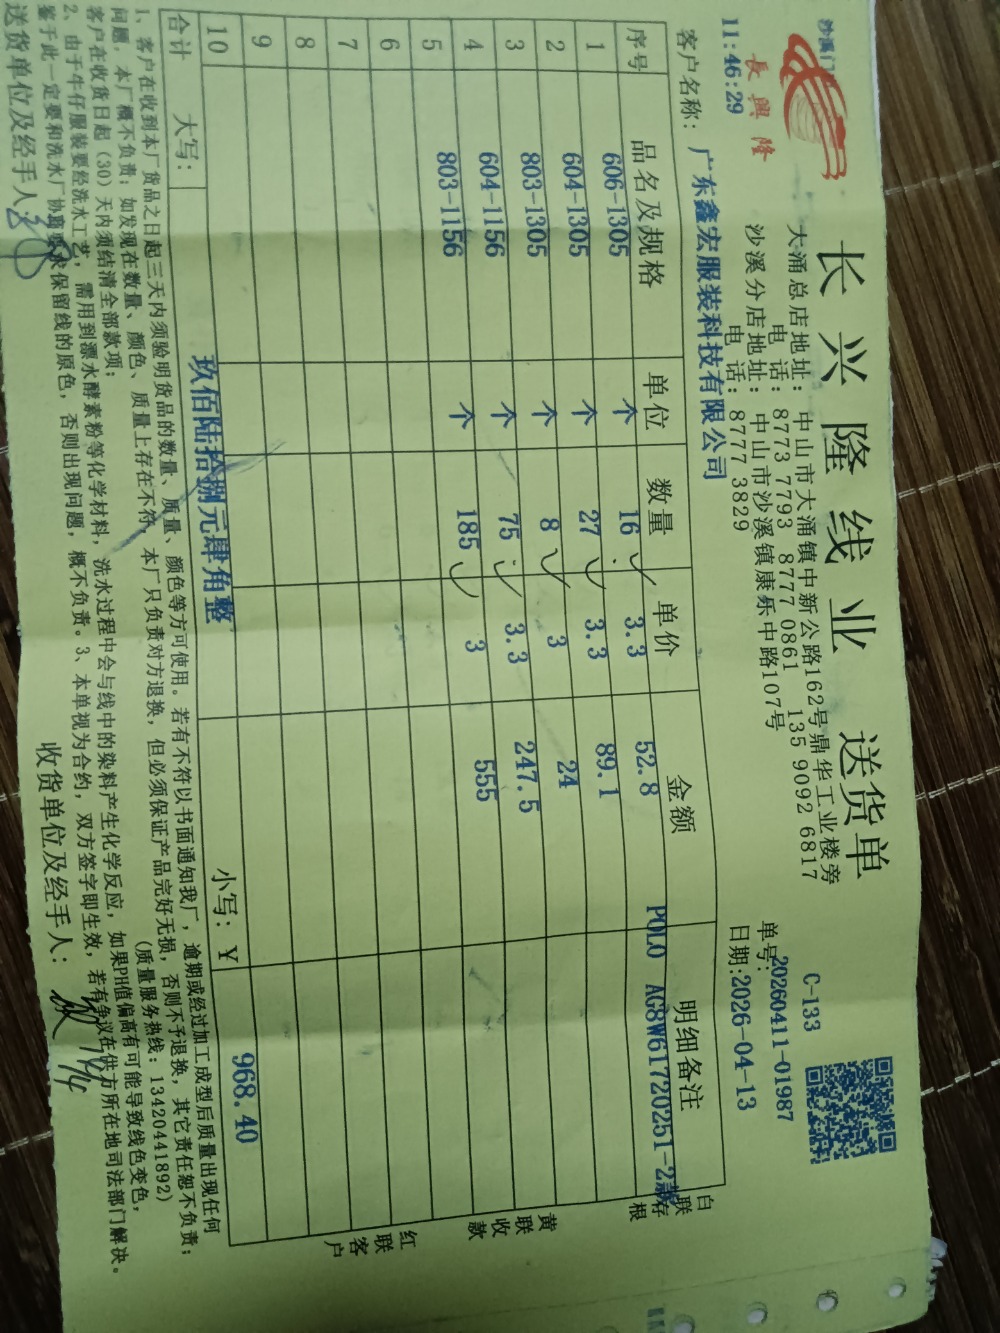 长兴隆线业 送货单
沙溪门
長興隆
大涌总店地址：中山市大涌镇中新公路162号鼎华工业楼旁
电 话：8773 7793 8777 0861 135 9092 6817
沙溪分店地址：中山市沙溪镇康乐中路107号
电 话：8777 3829
C-133
单号:20260411-01987
日期:2026-04-13
11:46:29
客户名称：广东鑫宏服装科技有限公司
序号 品名及规格 单位 数量 单价 金额 明细备注
1 606-1305 个 16 3.3 52.8 POLO AG8W61720251-2款
2 604-1305 个 27 3.3 89.1
3 803-1305 个 8 3 24
4 604-1156 个 75 3.3 247.5
5 803-1156 个 185 3 555
6
7
8
9
10
合计 大写：玖佰陆拾捌元肆角整 小写：￥ 968.40
白联存根
黄联收款
红联客户
1、客户在收到本厂货品之日起三天内须验明货品的数量、质量、颜色等方可使用。若有不符以书面通知我厂，逾期或经过加工成型后质量出现任何
问题，本厂概不负责；如发现在数量、颜色、质量上存在不符，本厂只负责对方退换，但必须保证产品完好无损，否则不予退换，其它责任恕不负责；
客户在收货日起（30）天内须结清全部款项； (质量服务热线：13420441892)
2、由于牛仔服装要经洗水工艺，需用到漂水酵素粉等化学材料，洗水过程中会与线中的染料产生化学反应，如果PH值偏高有可能导致线色变色，
鉴于此一定要和洗水厂协商要求保留线的原色，否则出现问题，概不负责。3、本单视为合约，双方签字即生效，若有争议在供方所在地司法部门解决。
送货单位及经手人： 收货单位及经手人：